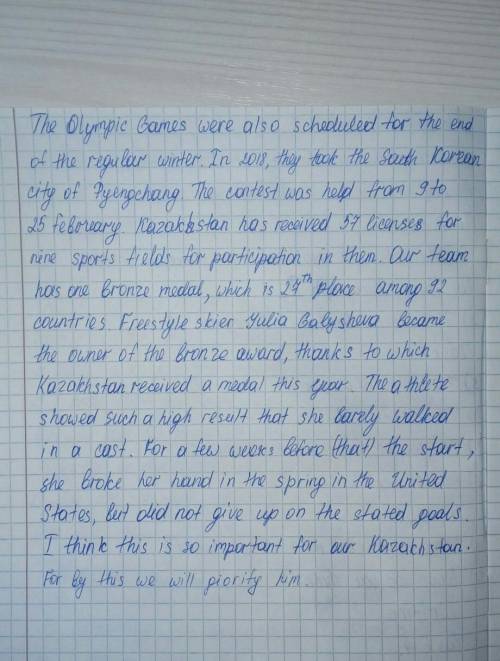 The Olympic Games were also scheduled for the end
of the regular winter. In 2018, they took the South Korean
city of Pyengchang. The contest was help from 9 to
25 february. Kazakhstan has received 57 licenses for
nine sports fields for participation in them. Our team
has one bronze medal, which is 27th place among 92
countries. Freestyle skier Yulia Galysheva became
the owner of the bronze award, thanks to which
Kazakhstan received a medal this year. The athlete
showed such a high result that she barely walked
in a cast. For a few weeks before (that) the start,
she broke her hand in the spring in the United
States, but did not give up on the stated goals.
I think this is so important for our Kazakhstan.
For by this we will piorify him.